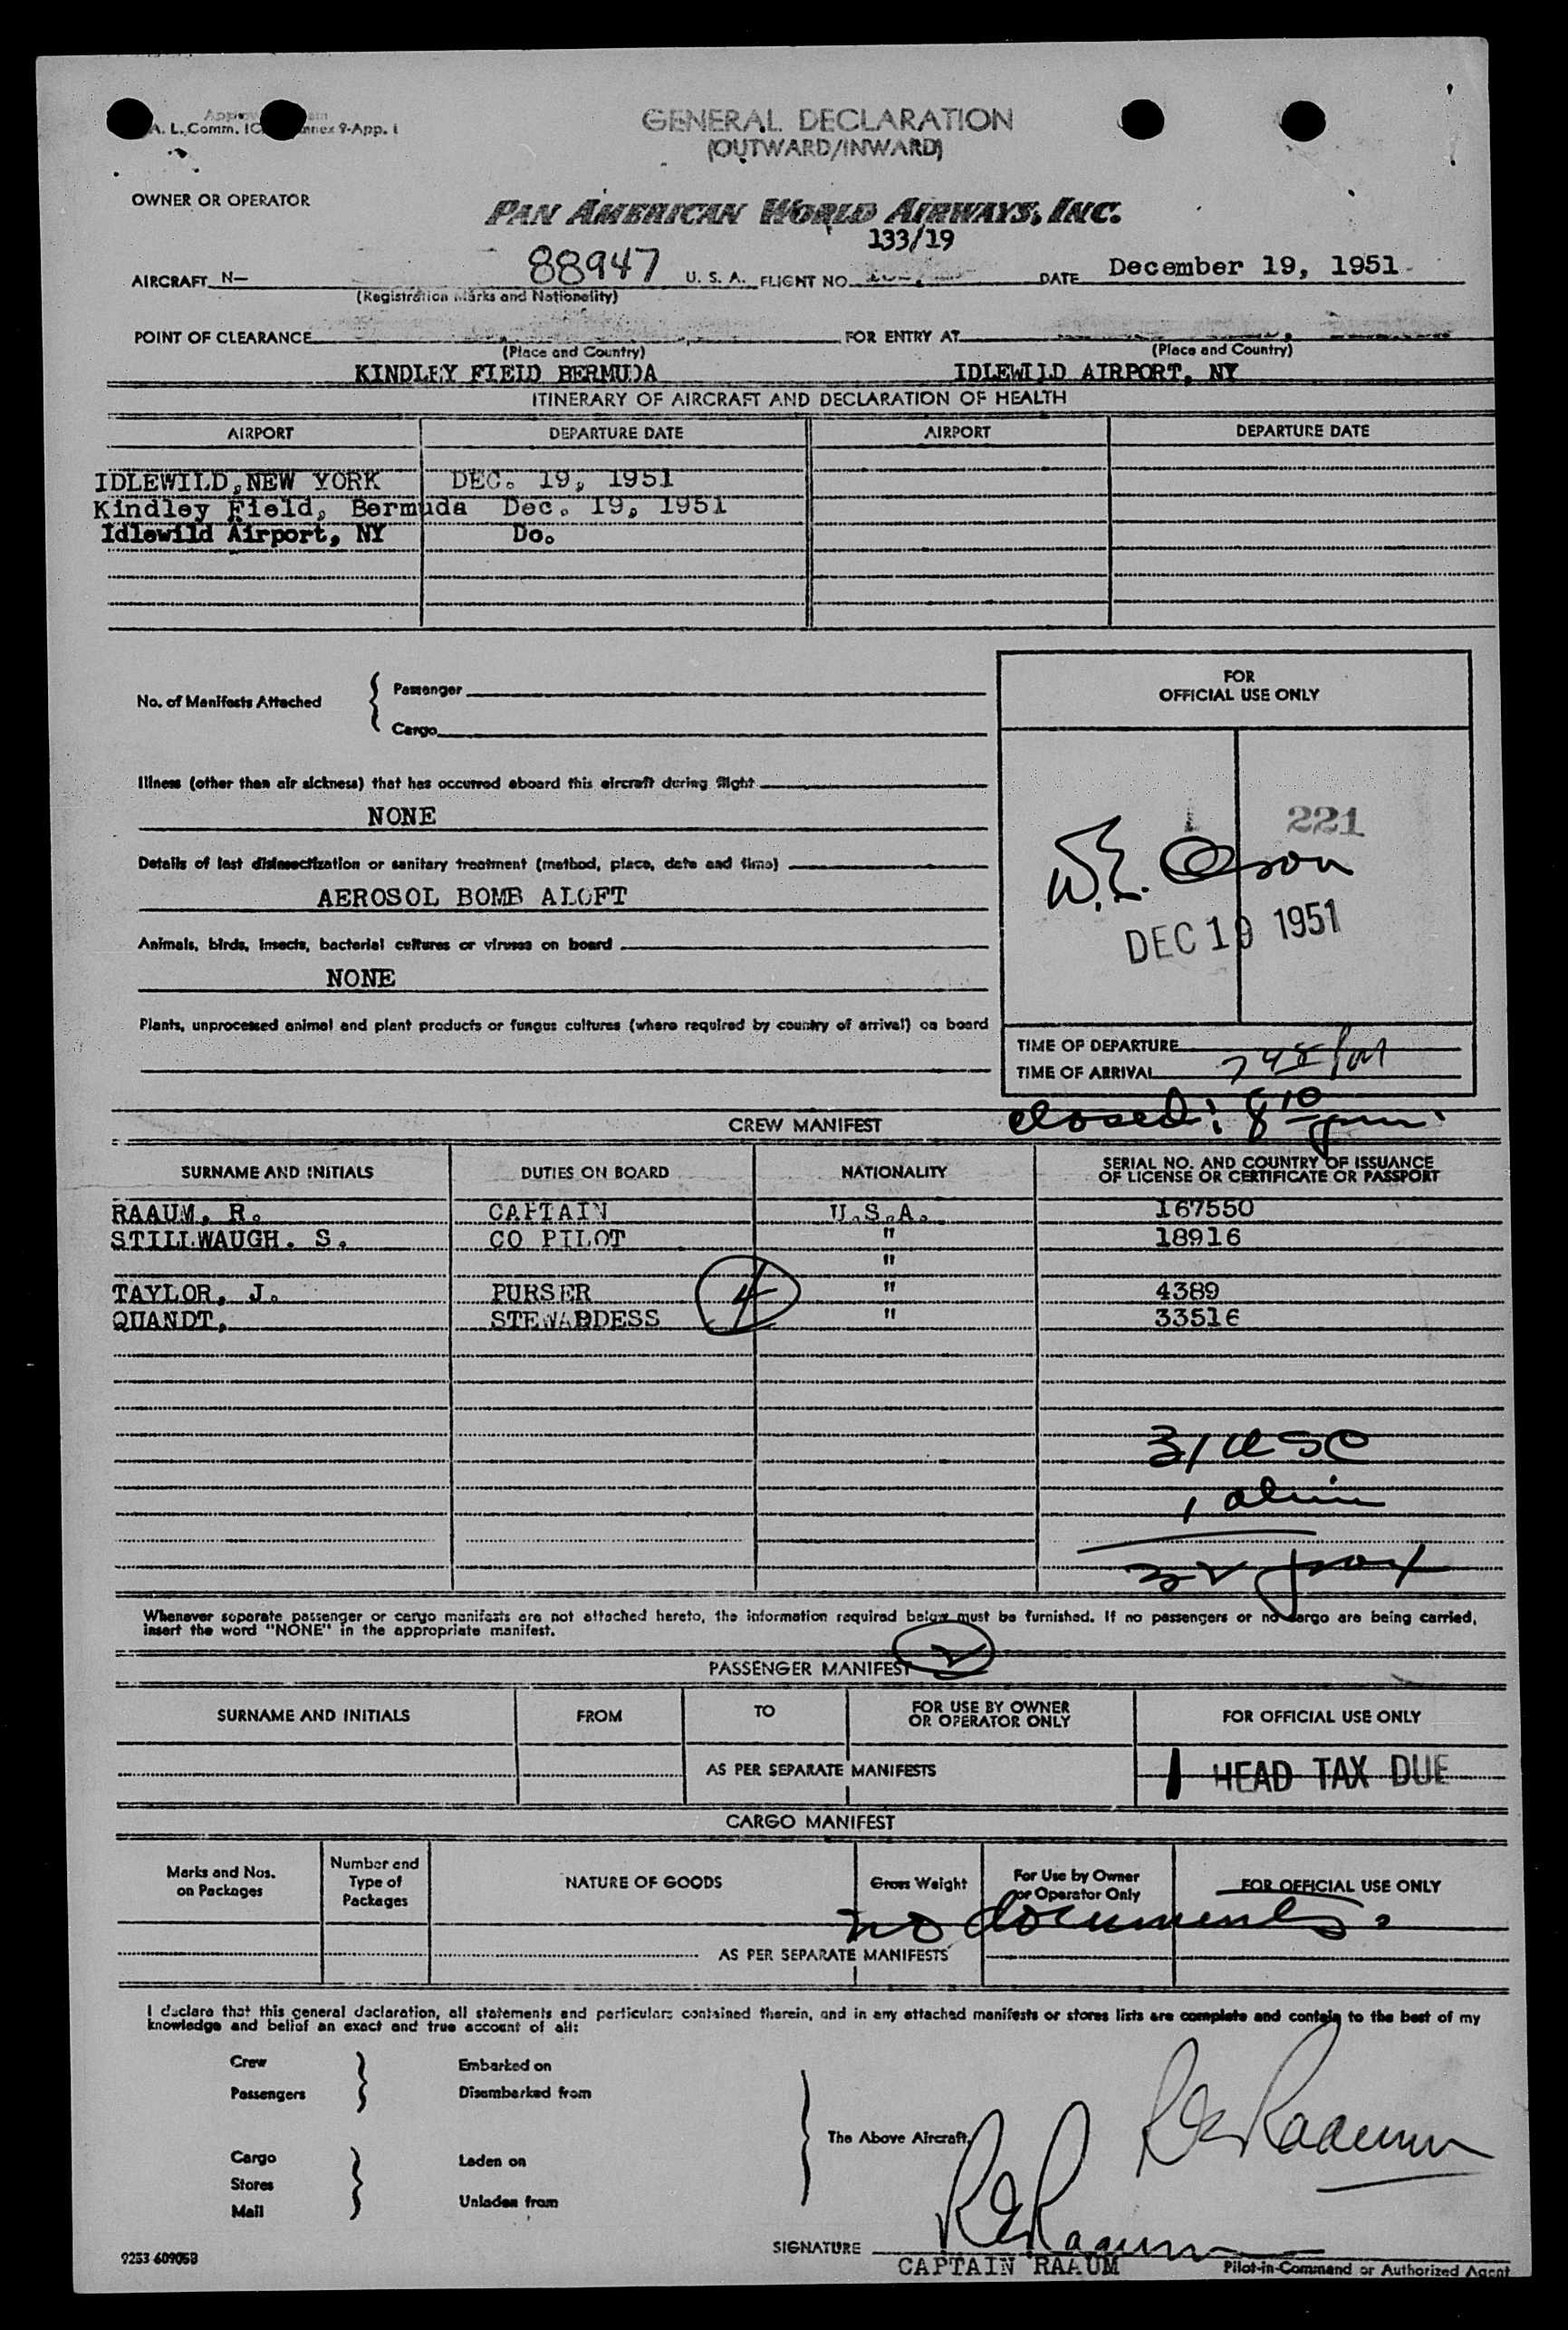 A. L. Comm. Annex 9-App. 1
GENERAL DECLARATION
(OUTWARD/INWARD)
OWNER OR OPERATOR
PAN AMERICAN WORLD AIRWAYS, INC.
133/19
AIRCRAFT N— 88947 U. S. A. FLIGHT NO. DATE December 19, 1951
(Registration Marks and Nationality)
POINT OF CLEARANCE FOR ENTRY AT
(Place and Country) (Place and Country)
KINDLEY FIELD BERMUDA IDLEWILD AIRPORT, NY
ITINERARY OF AIRCRAFT AND DECLARATION OF HEALTH
AIRPORT DEPARTURE DATE AIRPORT DEPARTURE DATE
IDLEWILD, NEW YORK DEC. 19, 1951
Kindley Field, Bermuda Dec. 19, 1951
Idlewild Airport, NY Do.
FOR
OFFICIAL USE ONLY
No. of Manifests Attached { Passenger
Cargo
Illness (other than air sickness) that has occurred aboard this aircraft during flight
NONE
221
Details of last disinsectization or sanitary treatment (method, place, date and time)
AEROSOL BOMB ALOFT
DEC 19 1951
Animals, birds, insects, bacterial cultures or viruses on board
NONE
Plants, unprocessed animal and plant products or fungus cultures (where required by country of arrival) on board
TIME OF DEPARTURE
TIME OF ARRIVAL 748 PM
closed: 8 10 pm
CREW MANIFEST
SURNAME AND INITIALS DUTIES ON BOARD NATIONALITY SERIAL NO. AND COUNTRY OF ISSUANCE
OF LICENSE OR CERTIFICATE OR PASSPORT
RAAUM, R. CAPTAIN U.S.A. 167550
STILLWAUGH. S. CO PILOT " 18916
"
TAYLOR, J. PURSER 4 " 4389
QUANDT, STEWARDESS " 33516
31 USC
1 alien
32 pax
Whenever separate passenger or cargo manifests are not attached hereto, the information required below must be furnished. If no passengers or no cargo are being carried,
insert the word "NONE" in the appropriate manifest.
PASSENGER MANIFEST
SURNAME AND INITIALS FROM TO FOR USE BY OWNER
OR OPERATOR ONLY FOR OFFICIAL USE ONLY
AS PER SEPARATE MANIFESTS 1 HEAD TAX DUE
CARGO MANIFEST
Marks and Nos.
on Packages Number and
Type of
Packages NATURE OF GOODS Gross Weight For Use by Owner
or Operator Only FOR OFFICIAL USE ONLY
no documents.
AS PER SEPARATE MANIFESTS
I declare that this general declaration, all statements and particulars contained therein, and in any attached manifests or stores lists are complete and contain to the best of my
knowledge and belief an exact and true account of all:
Crew Embarked on
Passengers Disembarked from
The Above Aircraft. R E Raaum
Cargo Laden on
Stores
Mail Unladen from
SIGNATURE R E Raaum
CAPTAIN RAAUM Pilot-in-Command or Authorized Agent
9253 60905B